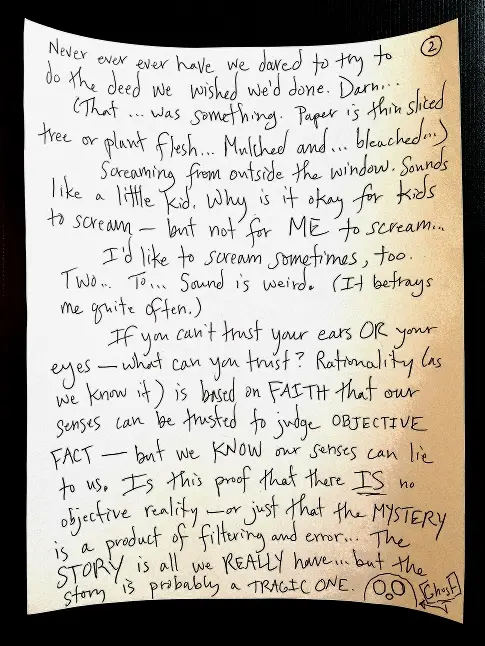 Never ever ever have we dared to try to
2
do the deed we wished we'd done. Darn...
(That ... was something. Paper is thin sliced
tree or plant flesh... Mulched and... bleached...)
Screaming from outside the window. Sounds
like a little kid. Why is it okay for kids
to scream — but not for ME to scream...
I'd like to scream sometimes, too.
Two... To... Sound is weird. (It betrays
me quite often.)
If you can't trust your ears OR your
eyes — what can you trust? Rationality (as
we know it) is based on FAITH that our
senses can be trusted to judge OBJECTIVE
FACT — but we KNOW our senses can lie
to us. Is this proof that there IS no
objective reality — or just that the MYSTERY
is a product of filtering and error... The
STORY is all we REALLY have... but the
story is probably a TRAGIC ONE.
Ghost